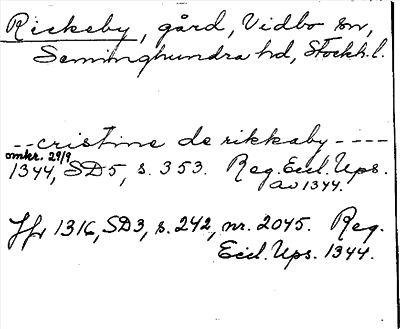 Rickeby, gård, Vidbo sn,
Seminghundra hd, Stockh.l.
--cristine de rikkaby----
omkr. 29/9
1344, SD5, s. 353. Reg. Eccl. Ups.
av 1344.
Jfr 1316, SD3, s. 242, nr. 2045. Reg.
Eccl. Ups. 1344.